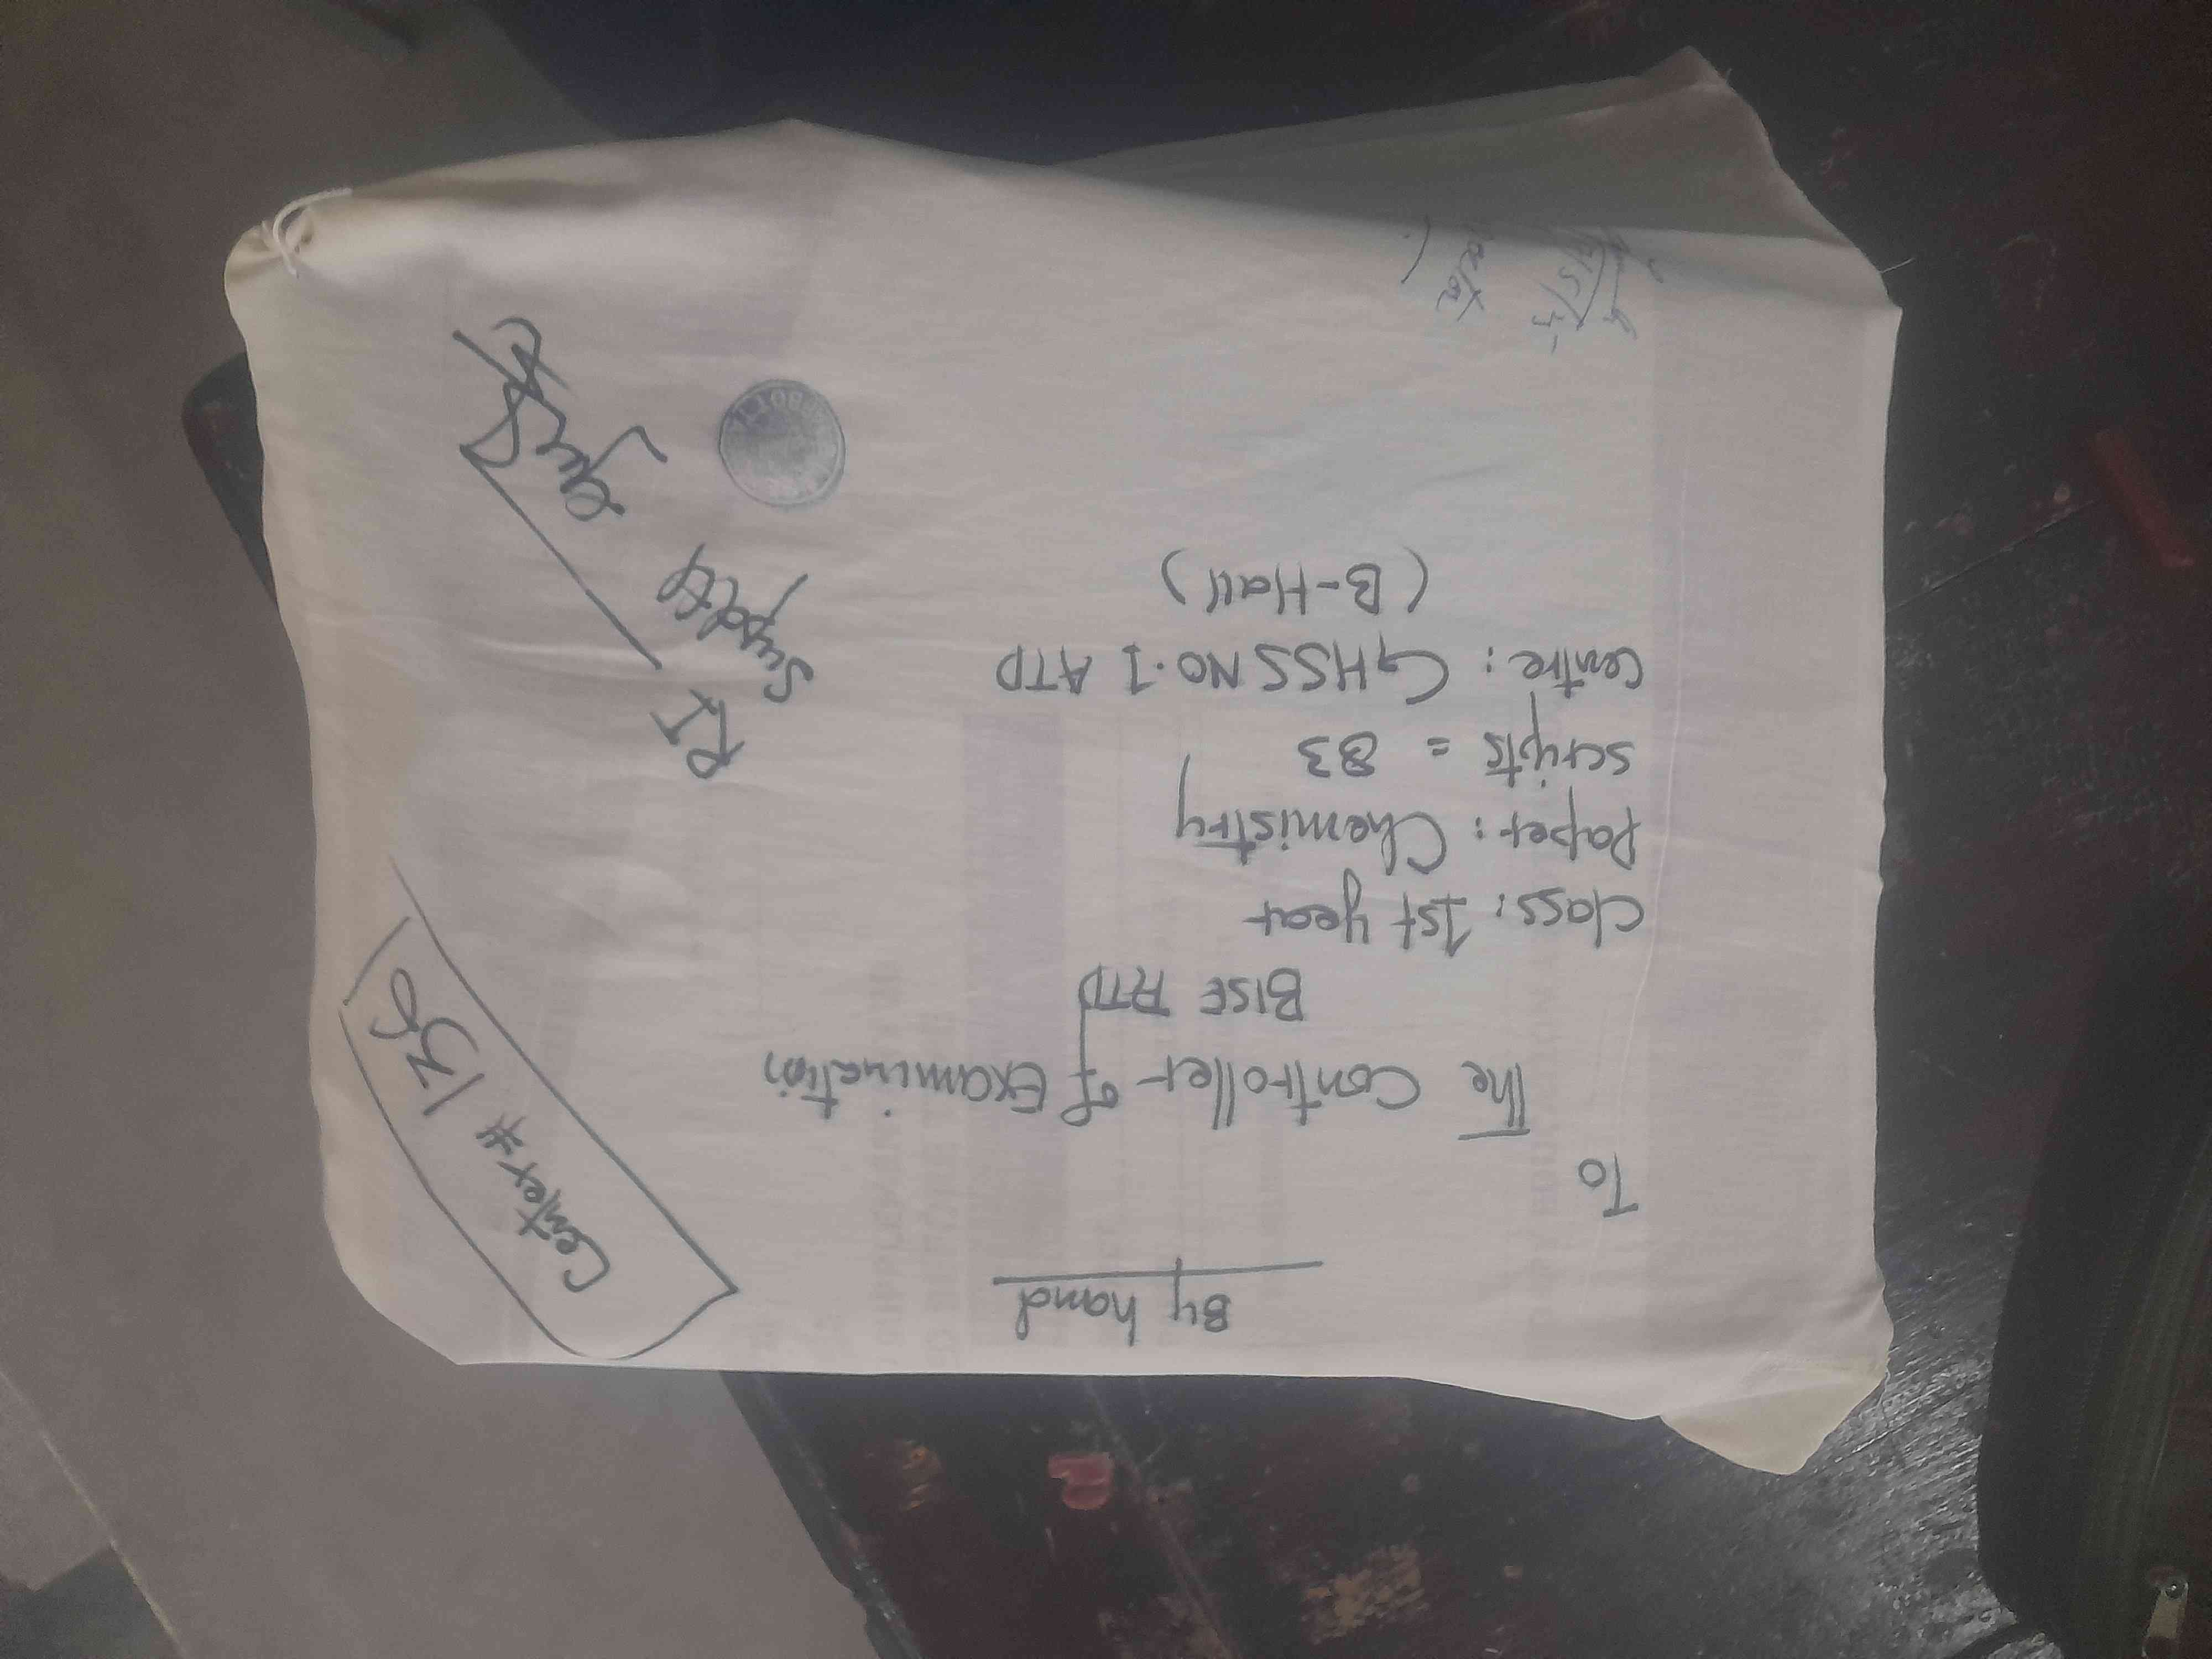 By hand
Center # 136
To
The Controller of Examination
BISE ATD
Class: 1st year
Paper: Chemistry
scripts = 83
Centre: GHSS NO.1 ATD
(B-Hall)
RI
Supdtt